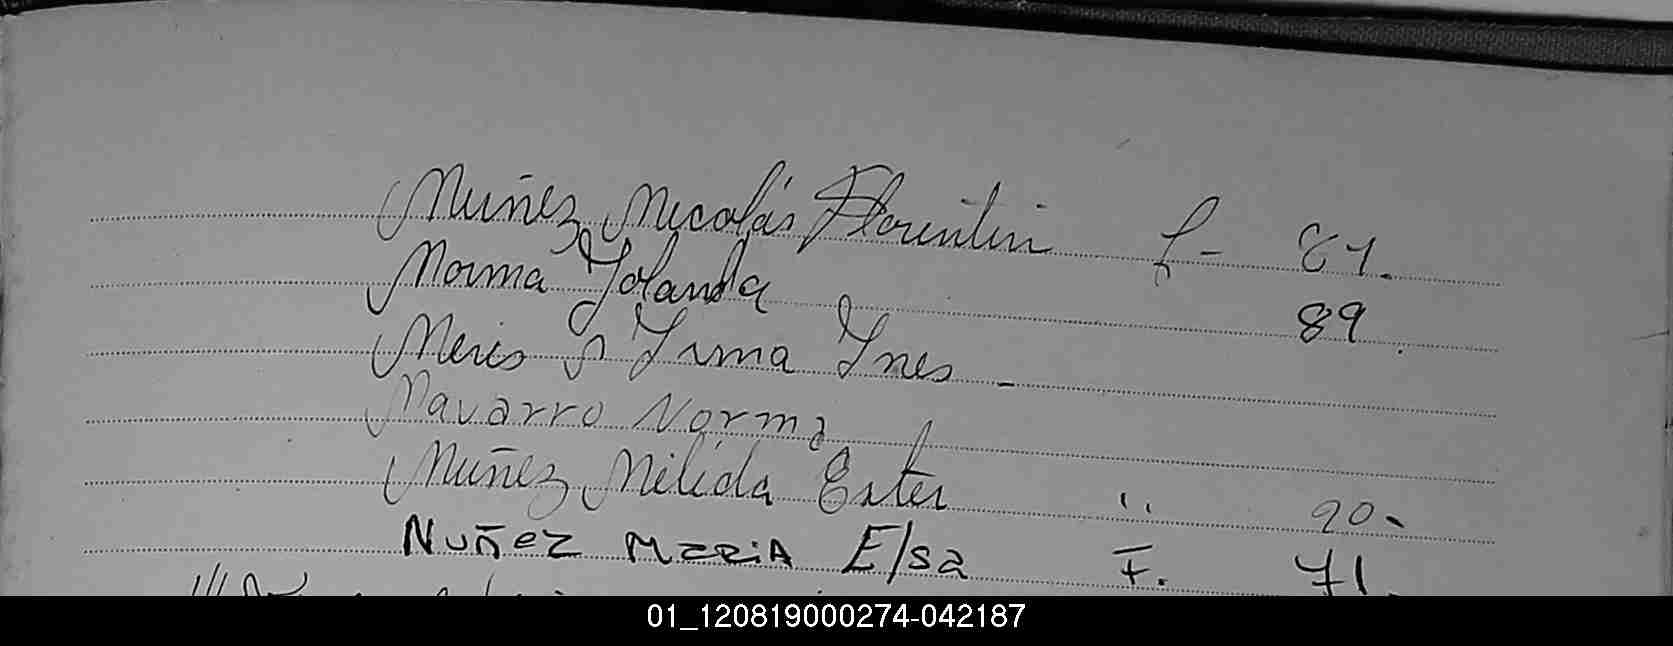 Nuñez Nicolás Florentin f- 87.
Norma Yolanda 89.
Neris Irma Ines -
Navarro Norma
Nuñez Nélida Ester " 90.
Nuñez MARiA Elsa F. 71.
01_120819000274-042187